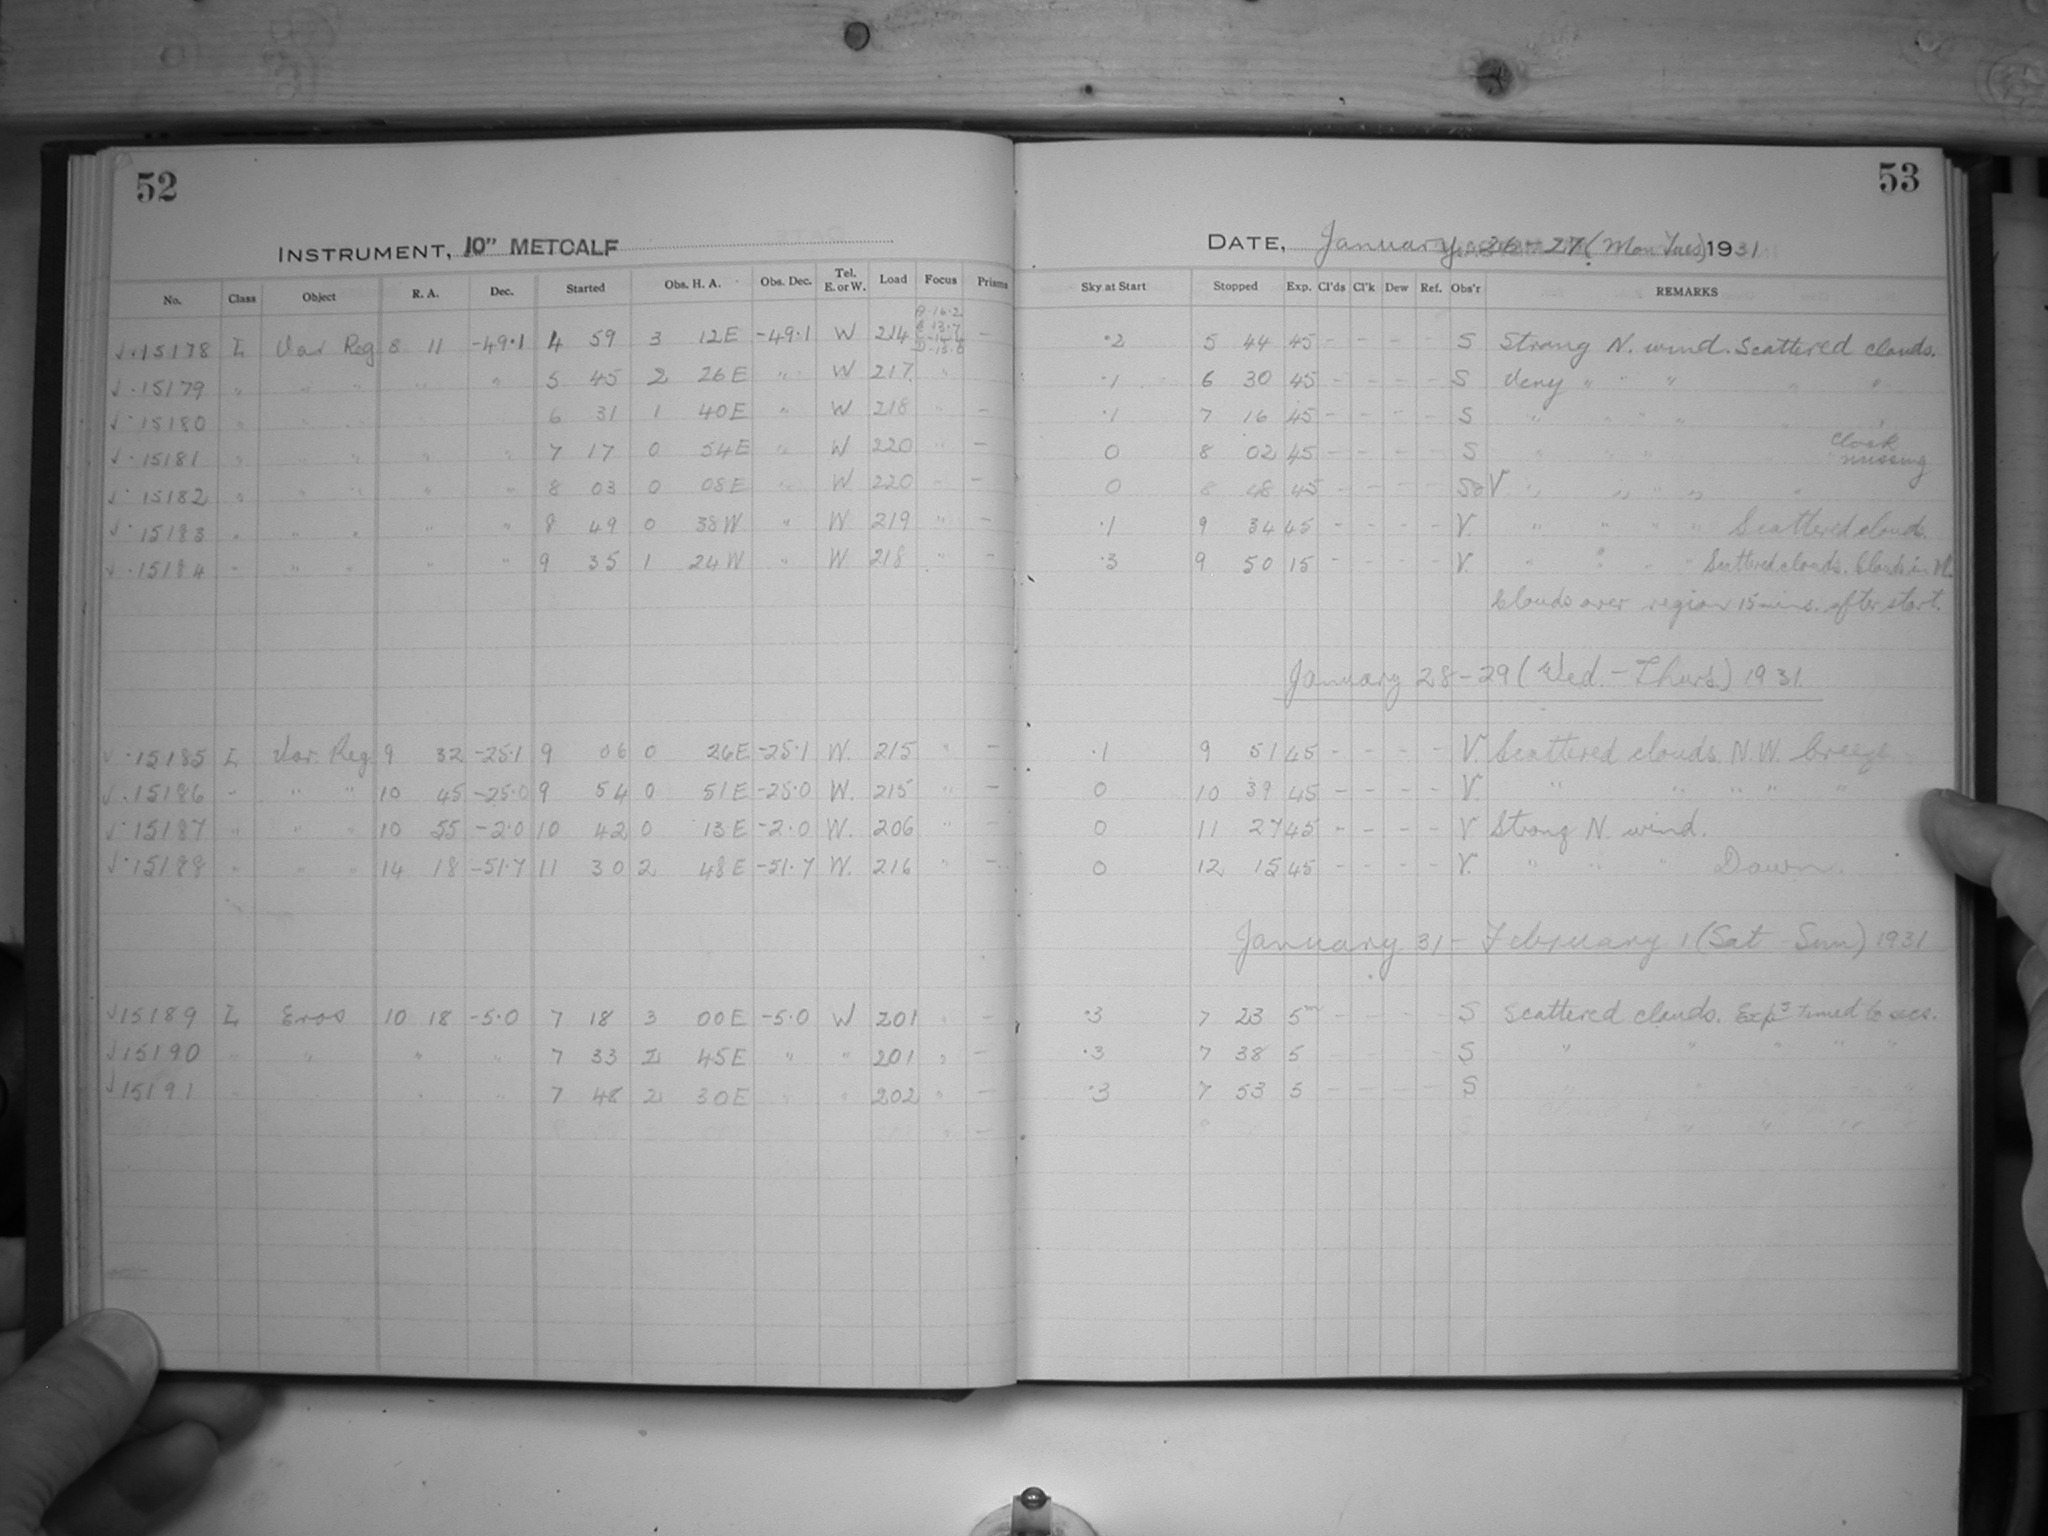 52
INSTRUMENT, 10" METCALF
No. Class Object R. A. Dec. Started Obs. H. A. Obs. Dec. Tel. E. or W. Load Focus Prisms
√·15178 L Var Reg 8 11 -49·1 4 59 3 12E -49·1 W 214 —
√·15179 " " " " " 5 45 2 26E " W 217 "
√·15180 " " " 6 31 1 40E " W 218 " —
√·15181 " " " " " 7 17 0 54E " W 220 " —
√·15182 " " " " " 8 03 0 08E " W 220 " —
√·15183 " " " " " 8 49 0 38W " W 219 " —
√·15184 " " " " " 9 35 1 24W " W 218 " —
√·15185 L Var. Reg 9 32 -25·1 9 06 0 26E -25·1 W. 215 " —
√·15186 " " " 10 45 -25·0 9 54 0 51E -25·0 W. 215 " —
√·15187 " " " 10 55 -2·0 10 42 0 13E -2·0 W. 206 " —
√·15188 " " " 14 18 -51·7 11 30 2 48E -51·7 W. 216 " —
√15189 L Eros 10 18 -5·0 7 18 3 00E -5·0 W 201 " —
√15190 " " " " 7 33 2 45E " " 201 " —
√15191 " " " 7 48 2 30E " " 202 " —
53
DATE, January 26-27 (Mon Tues) 1931
Sky at Start Stopped Exp. Cl'ds Cl'k Dew Ref. Obs'r REMARKS
·2 5 44 45 - - - - S Strong N. wind. Scattered clouds.
·1 6 30 45 - - - - S Very " " " " "
·1 7 16 45 - - - - S " " " " "
0 8 02 45 - - - - S " " " clock missing
0 8 48 45 - - - - S&V " " " " "
·1 9 34 45 - - - - V. " " " " Scattered clouds.
·3 9 50 15 - - - - V. " " " " Scattered clouds. Clouds in
Clouds over region 15 mins. after start.
January 28-29 (Wed.-Thurs) 1931.
·1 9 51 45 - - - - V. Scattered clouds. N.W. breeze
0 10 39 45 - - - - V. " " " " "
0 11 27 45 - - - - V Strong N. wind.
0 12 15 45 - - - - V. " " " Dawn.
January 31-February 1 (Sat-Sun) 1931
·3 7 23 5m - - - - S Scattered clouds. Exps timed to secs.
·3 7 38 5 - - - - S " " " " "
·3 7 53 5 - - - - S